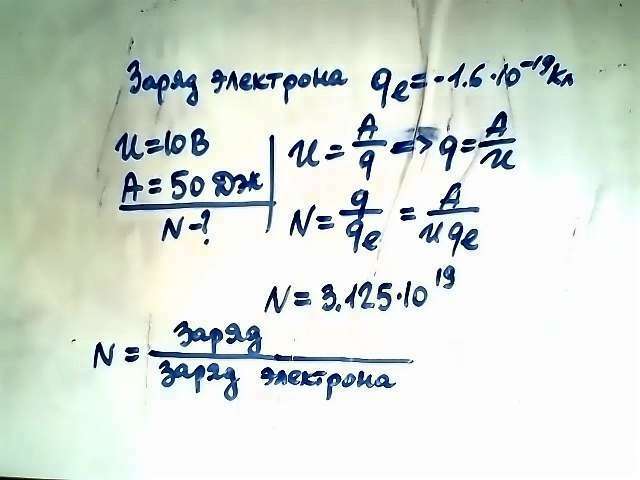 Заряд электрона qe = -1.6·10⁻¹⁹ Кл
U = 10 В
A = 50 Дж
N - ?
U = A/q => q = A/U
N = q/qe = A/U qe
N = 3.125·10¹⁹
N = заряд/заряд электрона